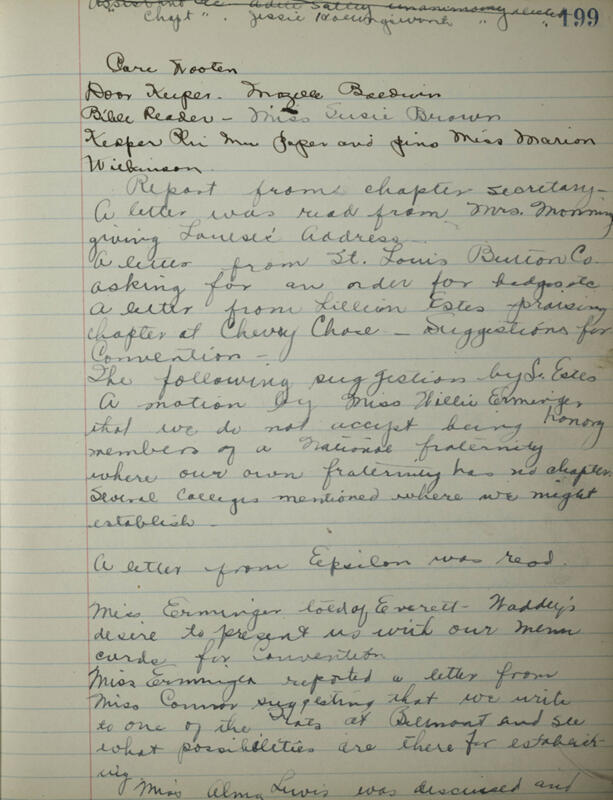 199
Chapt". Jessie
Care Wooten
Door Keeper. Mozelle Baldwin
Bible Reader - Miss Susie Brown
Keeper Phi Mu paper and pins Miss Marion
Wilkinson.
Report from chapter secretary -
A letter was read from Mrs. Momming
giving Louise's Address.
A letter from St. Louis Button Co.
asking for an order for badges etc
A letter from Lillian Estes praising
chapter at Chevy Chase - Suggestions for
Convention -
The following suggestion by L. Estes
A motion by Miss Willie Erminger
that we do not accept being honory
members of a National fraternity
where our own fraternity has no chapter.
Several Colleges mentioned where we might
establish -
A letter from Epsilon was read.
Miss Erminger told of Everett - Waddey's
desire to present us with our menu
cards for convention
Miss Erminger reported a letter from
Miss Connor suggesting that we write
to one of the Frats at Belmont and see
what possibilities are there for establish-
ing
Miss Alma Lewis was discussed and